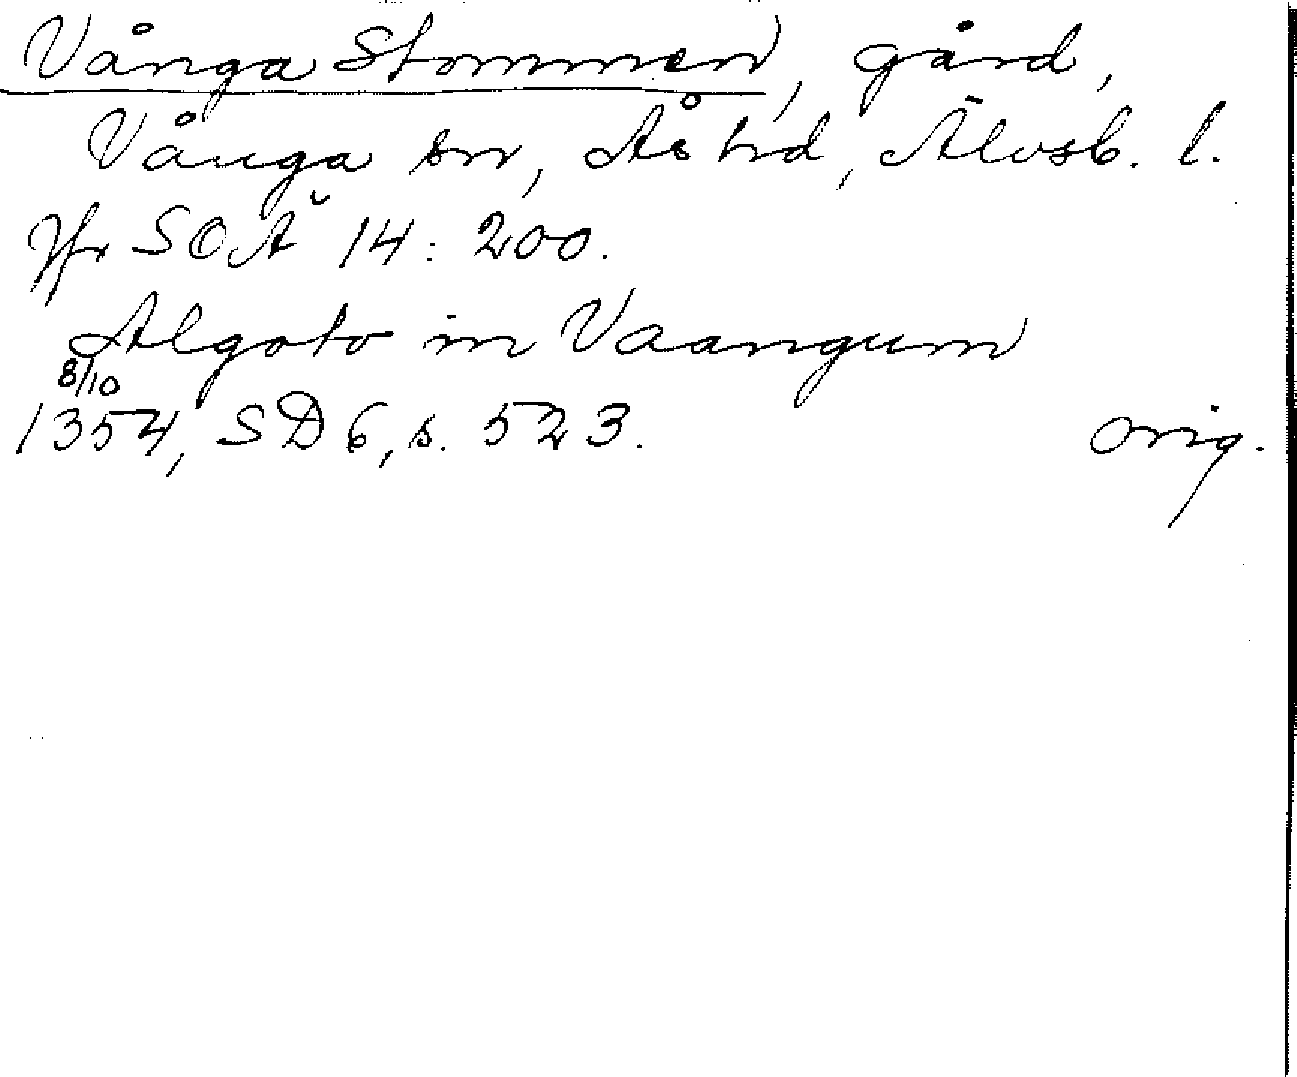 Vånga Stommen, gård,
Vånga sn, Ås hd, Älvsb. l.
Jfr SOÄ 14: 200.
Algoto in Vaangum
8/10
1354, SD 6, s. 523. orig.